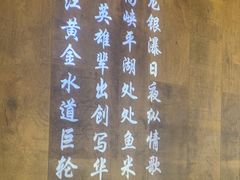 龙银瀑日夜纵情歌
峡平湖处处鱼米
英雄辈出创写华
江黄金水道巨轮